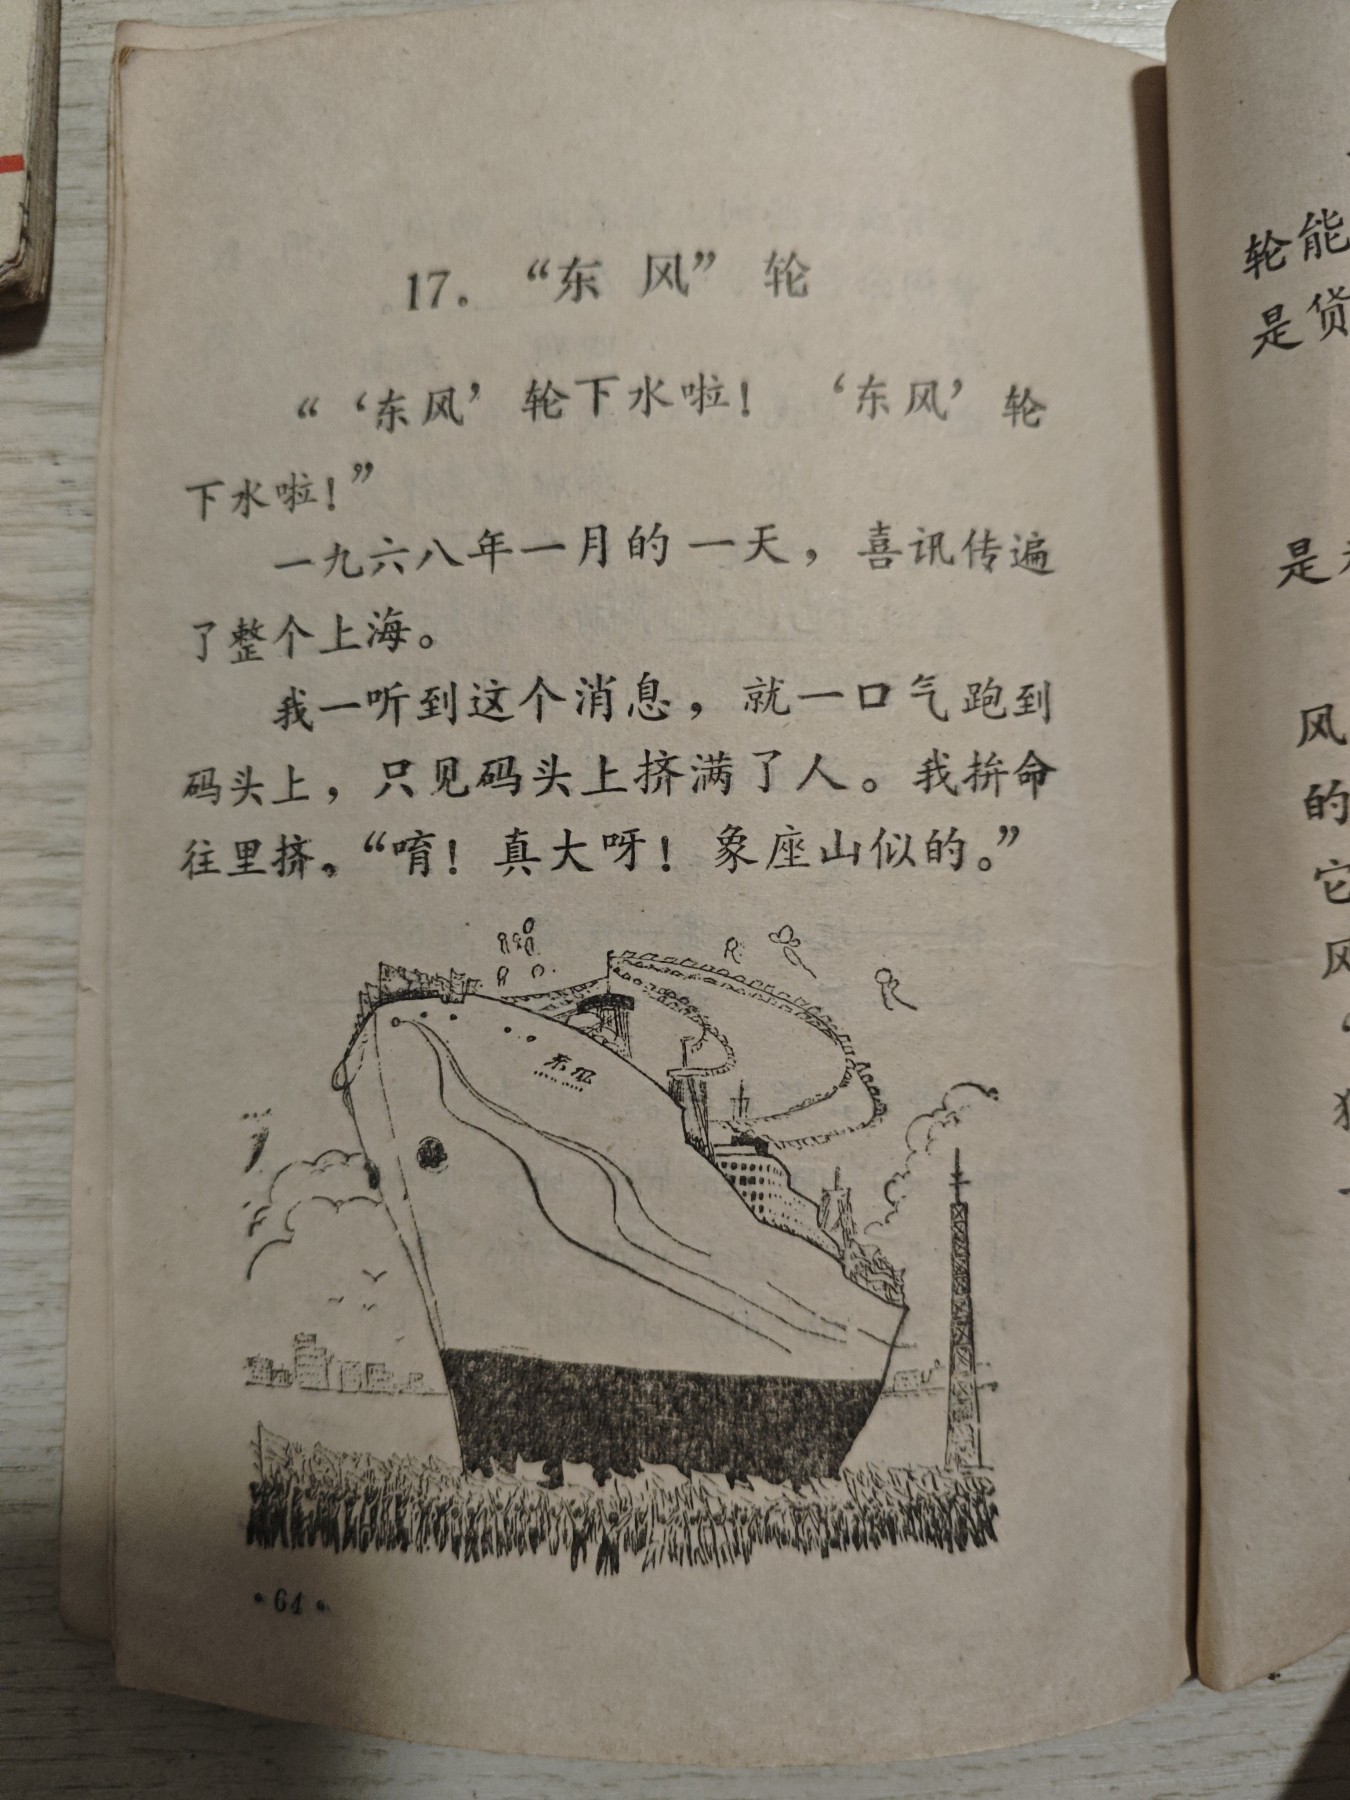 17. “东 风” 轮
“‘东风’轮下水啦！ ‘东风’轮
下水啦！”
一九六八年一月的一天，喜讯传遍
了整个上海。
我一听到这个消息，就一口气跑到
码头上，只见码头上挤满了人。我拚命
往里挤。“唷！真大呀！象座山似的。”
东风
·64·
轮能
是贷
是
风
的
它
风